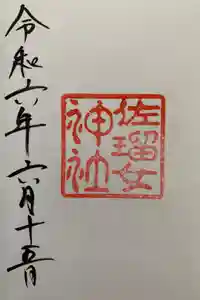 佐瑠女
神社
令和六年六月十五日